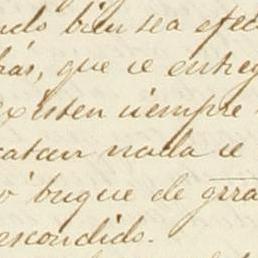 ndo bien sea efec
has, que se entreg
existen siempre
catan nada se
o buque de grra
escondido.